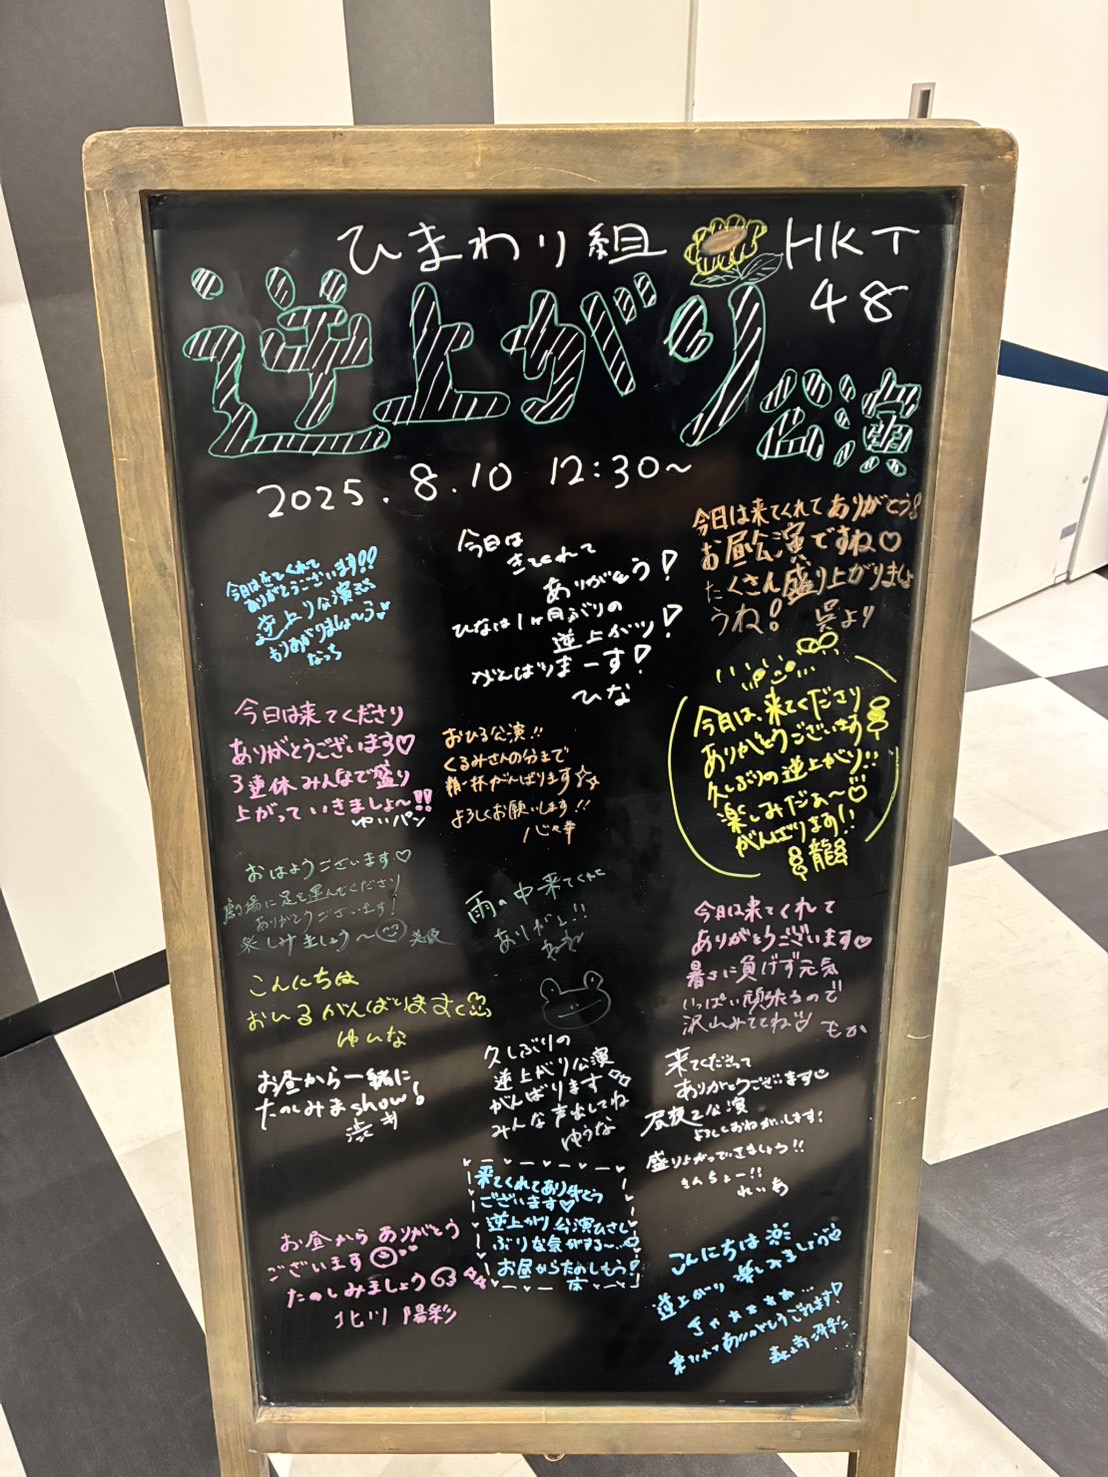 ひまわり組 HKT
48
逆上がり
公演
2025.8.10 12:30~
今日はきてくれて
ありがとうございます!!
逆上り公演
もりあがりましょ〜う
なっち
今日は
きてくれて
ありがとう!
ひなは1ヶ月ぶりの
逆上がり!
がんばりまーす!
ひな
今日は来てくれてありがとう!
お昼公演ですね♡
たくさん盛り上がりましょ
うね! 呉より
今日は来てくださり
ありがとうございます♡
3連休みんなで盛り
上がっていきましょ〜!!
ゆいパン
おひる公演!!
くるみさんの分まで
精一杯がんばります☆
よろしくお願いします!!
心々華
今日は、来てくださり
ありがとうございます
久しぶりの逆上がり!!
楽しみだぁ〜♡
がんばります!!
龍
おはようございます♡
劇場に足を運んでくださり
ありがとうございます!
楽しみましょう〜
雨の中来てくれて
ありがと!!
今日は来てくれて
ありがとうございます♡
暑さに負けず元気
いっぱい頑張るので
沢山みててね♡ もか
こんにちは
おひるがんばります
ゆいな
久しぶりの
逆上がり公演
がんばります
みんな声出してね
ゆうな
来てくださって
ありがとうございます
昼夜2公演
よろしくおねがいします!
盛り上がっていきましょう!!
きんちょー!!
れいあ
お昼から一緒に
たのしみまshow!
渋井
来てくれてありがとう
ございます♡
逆上がり公演ひさし
ぶりな気がする〜
お昼からたのしもう!
お昼からありがとう
ございます
たのしみましょう
北川 陽彩
こんにちは
逆上がり 楽しみましょう
ありがとうございます!
森﨑冴彩